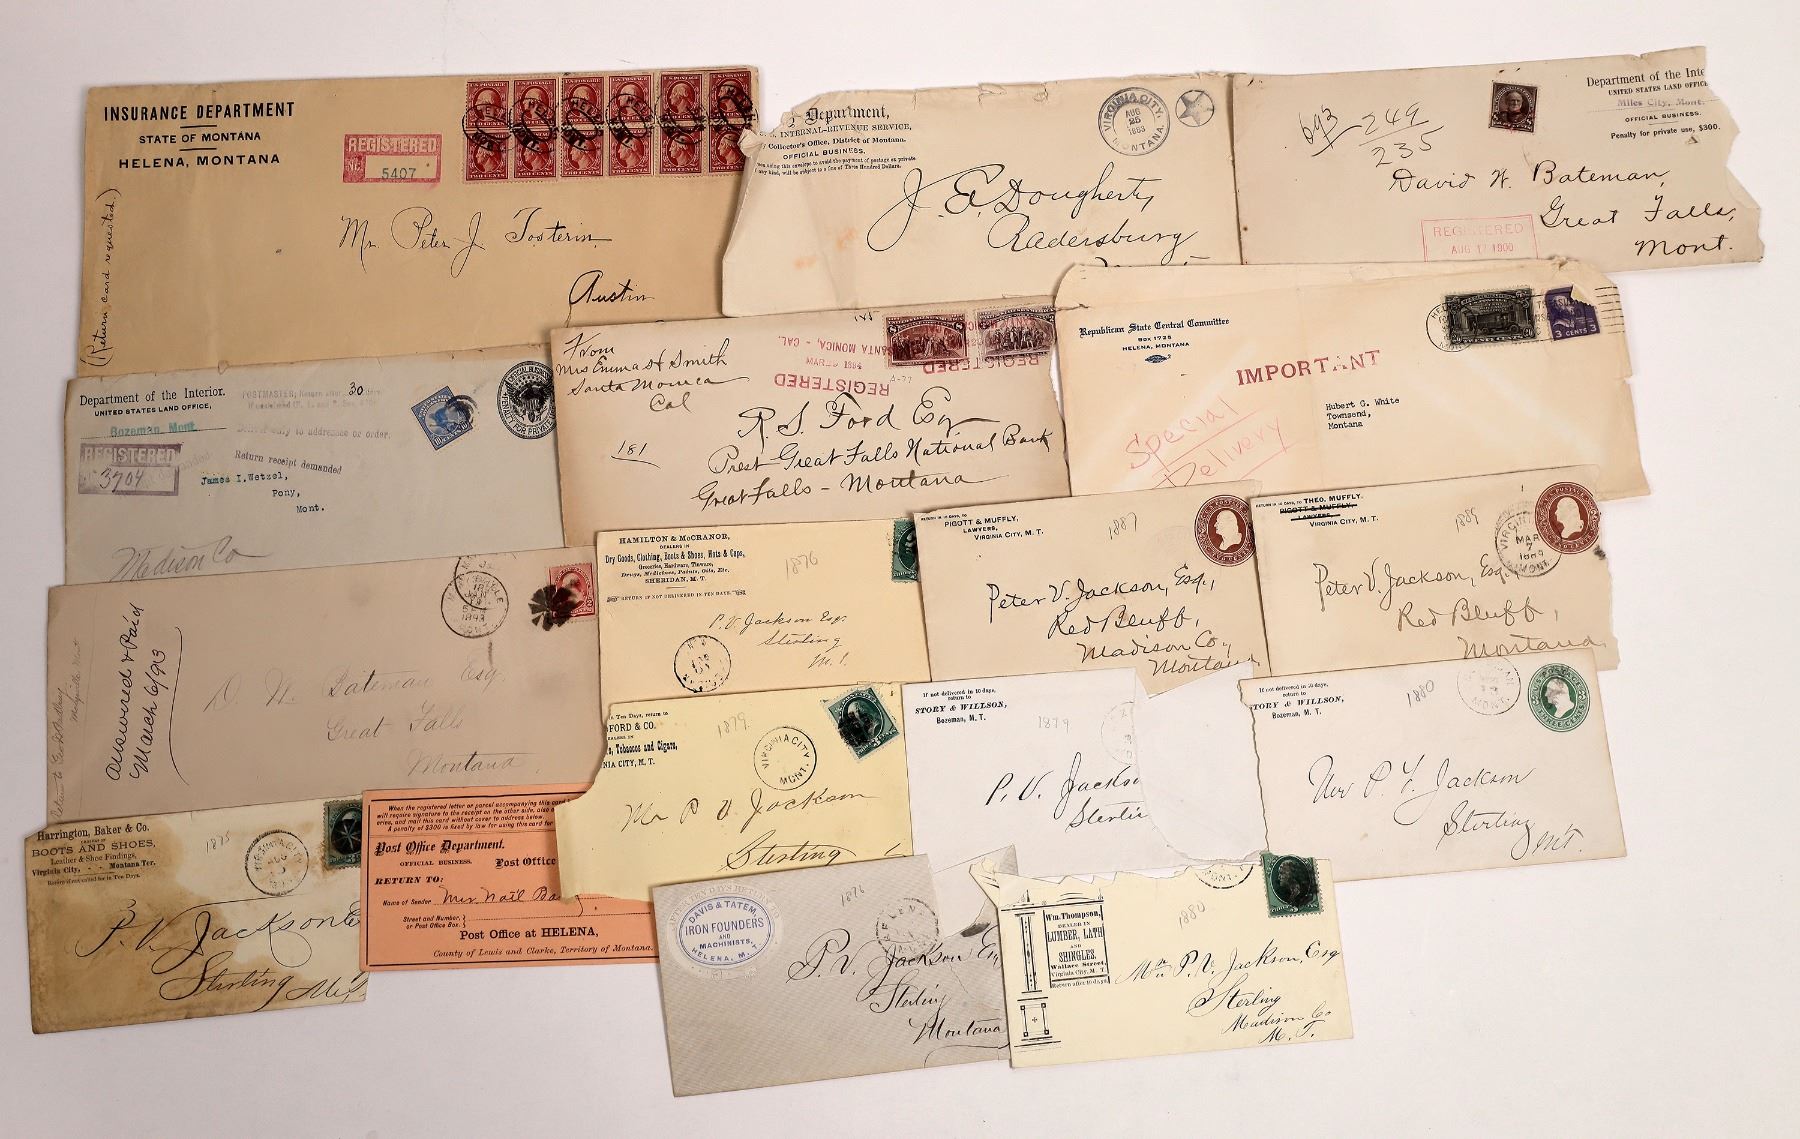 INSURANCE DEPARTMENT
STATE OF MONTANA
HELENA, MONTANA
REGISTERED
NO. 5407
U.S. POSTAGE
TWO CENTS
(Return card requested.)
Mr. Peter J. Tosterin
Austin
Department,
INTERNAL-REVENUE SERVICE,
Collector's Office, District of Montana.
OFFICIAL BUSINESS.
VIRGINIA CITY,
AUG
25
1883
MONTANA.
J. E. Dougherty,
Radersburg
693
249
235
Department of the Inte
UNITED STATES LAND OFFICE
Miles City, Mont.
OFFICIAL BUSINESS.
Penalty for private use, $300.
David W. Bateman,
Great Falls,
Mont.
REGISTERED
AUG 17 1900
Department of the Interior.
UNITED STATES LAND OFFICE,
Bozeman, Mont.
30
REGISTERED
3704
Return receipt demanded
James I. Wetzel,
Pony,
Mont.
Madison Co
From
Mrs Emma H Smith
Santa Monica
Cal
181
REGISTERED
SANTA MONICA - CAL.
REGISTERED
R. S. Ford Esq
Prest Great Falls National Bank
Great Falls - Montana
Republican State Central Committee
BOX 1735
HELENA, MONTANA
IMPORTANT
3 CENTS 3
Special
Delivery
Hubert G. White
Townsend,
Montana
Answered & Paid
March 6/93
D. W. Bateman Esq.
Great Falls
Montana
HAMILTON & McCRANOR,
DEALERS IN
Dry Goods, Clothing, Boots & Shoes, Hats & Caps,
Groceries, Hardware, Tinware,
Drugs, Medicines, Paints, Oils, Etc.
SHERIDAN, M. T.
RETURN IF NOT DELIVERED IN TEN DAYS.
1876
P. V. Jackson Esqr
Sterling
M. T.
RETURN IN 10 DAYS, TO
PIGOTT & MUFFLY,
LAWYERS,
VIRGINIA CITY, M. T.
1887
Peter V. Jackson, Esq.,
Red Bluff,
Madison Co.,
Montana
RETURN IN 10 DAYS, TO
THEO. MUFFLY.
PIGOTT & MUFFLY,
LAWYERS,
VIRGINIA CITY, M. T.
1889
VIRGINIA
MAR
7
1889
MONT.
Peter V. Jackson, Esq.
Red Bluff,
Montana
Ten Days, return to
FORD & CO.
Tobaccos and Cigars,
NIA CITY, M. T.
1879
VIRGINIA CITY
MONT.
Mr P V Jackson
Sterling
If not delivered in 10 days,
return to
STORY & WILLSON,
Bozeman, M. T.
1879
P. V. Jackso
Sterlin
If not delivered in 10 days,
return to
TORY & WILLSON,
Bozeman, M. T.
1880
MONT.
Jackson
Sterling
M.T.
Harrington, Baker & Co.
BOOTS AND SHOES,
Leather & Shoe Findings,
Virginia City, - - Montana Ter.
Return if not called for in Ten Days.
1875
VIRGINIA CITY
P. V. Jackson
Sterling
When the registered letter or parcel accompanying this card
will require signature to the receipt on the other side, also
eries, and mail this card without cover to address below.
A penalty of $300 is fixed by law for using this card for
Post Office Department.
OFFICIAL BUSINESS.
Post Office
RETURN TO:
Name of Sender
Mrs. Nat'l Ba
Street and Number,
or Post Office Box.
Post Office at HELENA,
County of Lewis and Clarke, Territory of Montana.
AFTER TEN DAYS RETURN TO
DAVIS & TATEM,
IRON FOUNDERS
AND
MACHINISTS,
HELENA, M. T.
1876
HELENA
P. V. Jackson Es
Sterling
Montana
Wm. Thompson,
DEALER IN
LUMBER, LATH
AND
SHINGLES.
Wallace Street,
Virginia City, M. T.
Return after 10 days.
1880
MONT.
P. V. Jackson, Esq
Sterling
Madison Co
M. T.